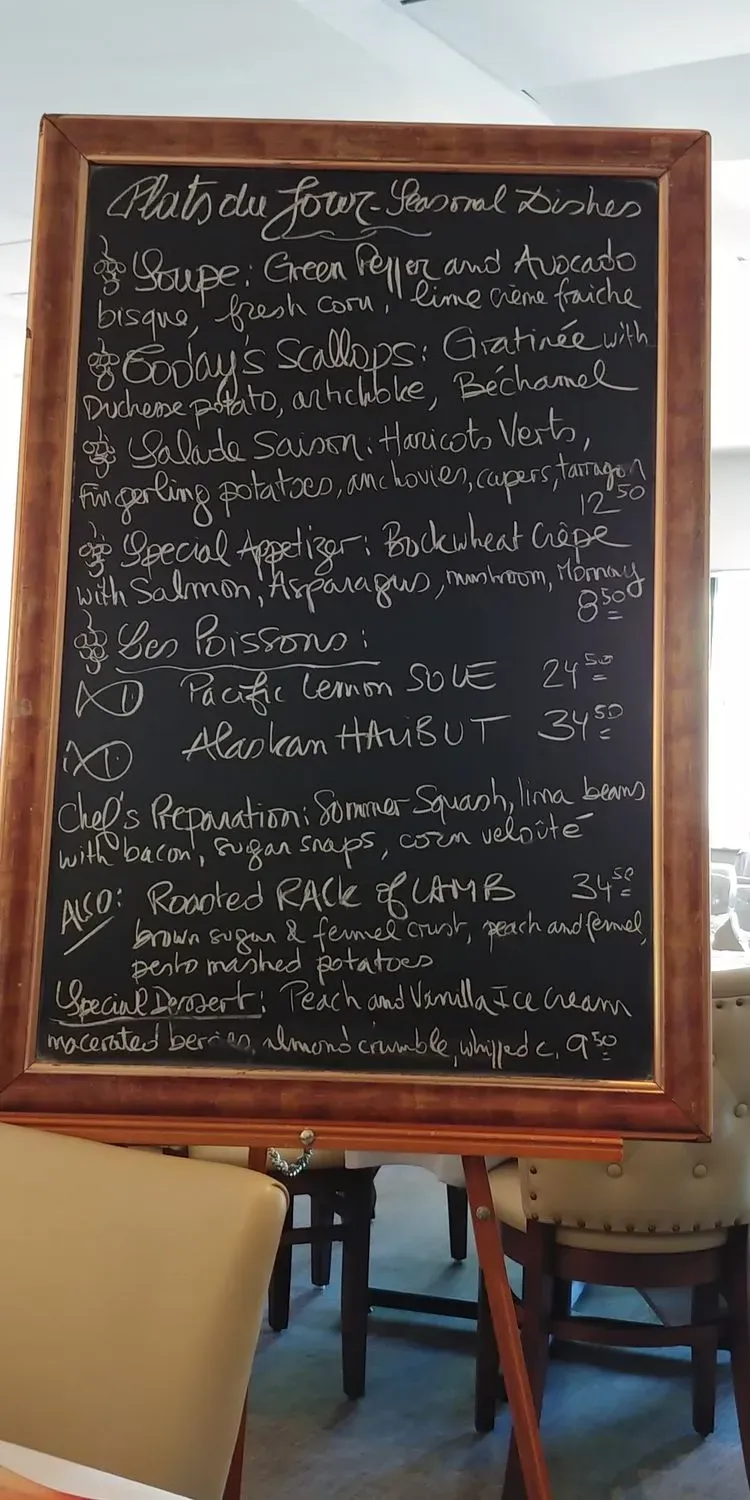 Plats du Jour - Seasonal Dishes
Soupe: Green Pepper and Avocado
bisque, fresh corn, lime crème fraiche
Today's Scallops: Gratinée with
Duchesse potato, artichoke, Béchamel
Salade Saison: Haricots Verts,
Fingerling potatoes, anchovies, capers, tarragon
12 50
Special Appetizer: Buckwheat Crêpe
with Salmon, Asparagus, mushroom, Mornay
8 50
Les Poissons:
Pacific Lemon SOLE 24 50
Alaskan HALIBUT 34 50
Chef's Preparation: Summer Squash, lima beans
with bacon, sugar snaps, corn velouté
ALSO: Roasted RACK of LAMB 34 50
brown sugar & fennel crust, peach and fennel,
pesto mashed potatoes
Special Dessert: Peach and Vanilla Ice Cream
macerated berries, almond crumble, whipped c. 9 50